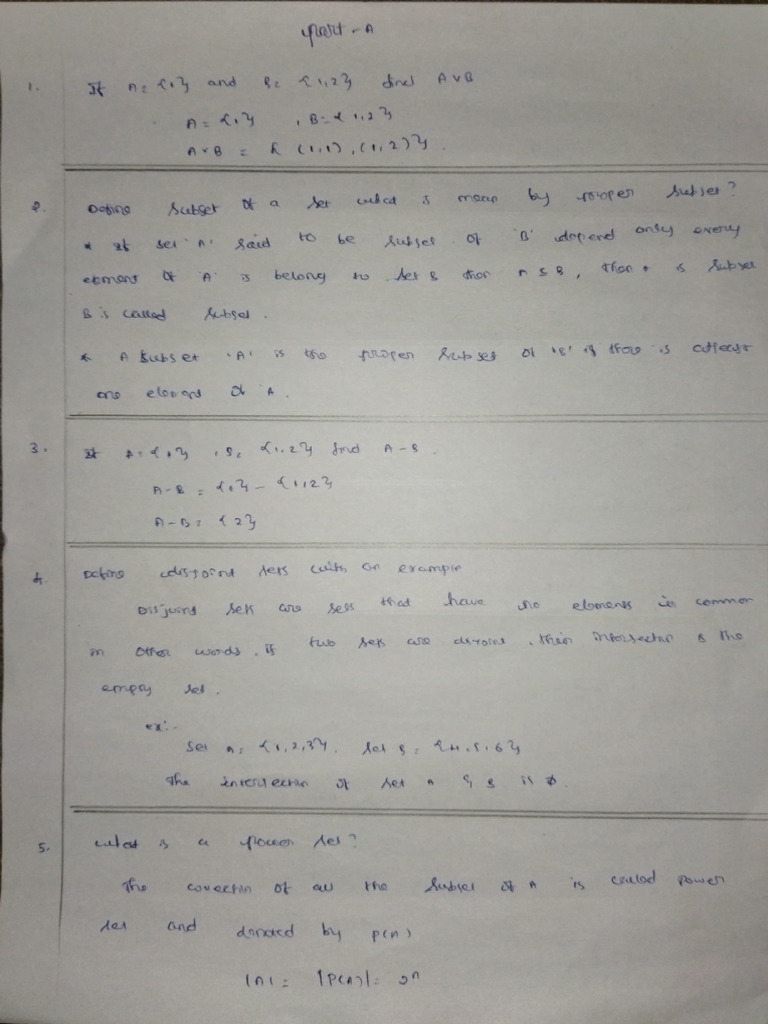 Part - A
1. If A = {1} and B = {1,2} find A×B
A = {1} , B = {1,2}
A×B = { (1,1), (1,2)}.
2. Define subset of a set what is mean by proper subset?
* If set 'A' said to be subset of 'B' depend only every
element of 'A' is belong to set B then A ⊆ B, then A is subset
B is called subset.
* A subset 'A' is the proper subset of 'B' if there is atleast
one element of A.
3. If A = {1} , B = {1,2} find A - B.
A - B = {1} - {1,2}
A - B = {2}
4. Define disjoint sets with an example
Disjoint sets are sets that have no elements in common
in other words, if two sets are disjoint, their intersection is the
empty set.
ex:-
Set A = {1,2,3}. Set B = {4,5,6}
The intersection of set A & B is ø.
5. What is a power set?
The collection of all the subset of A is called power
set and donated by P(A)
|A| = |P(A)| = 2n